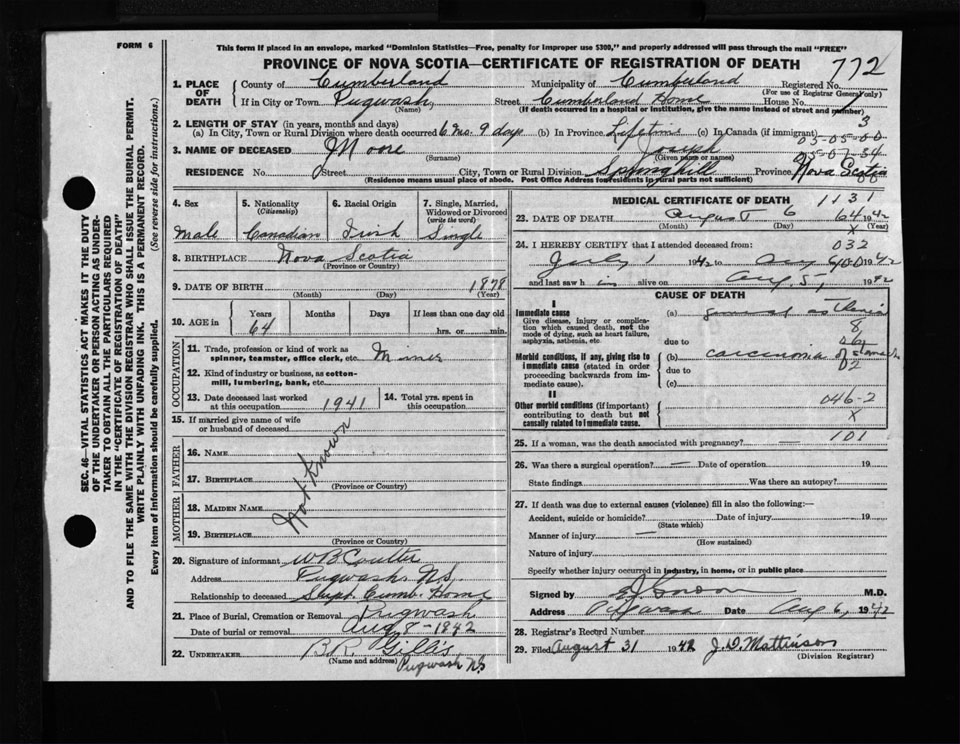 FORM 6
This form if placed in an envelope, marked "Dominion Statistics—Free, penalty for improper use $300," and properly addressed will pass through the mail "FREE"
PROVINCE OF NOVA SCOTIA—CERTIFICATE OF REGISTRATION OF DEATH
772
1. PLACE OF DEATH
County of Cumberland Municipality of Cumberland Registered No.
(For use of Registrar General only)
If in City or Town Pugwash Street Cumberland Home House No.
(Name) (If death occurred in a hospital or institution, give the name instead of street and number)
2. LENGTH OF STAY (in years, months and days)
(a) In City, Town or Rural Division where death occurred 6 mo. 9 days (b) In Province Lifetime (c) In Canada (if immigrant)
3. NAME OF DECEASED Moore Joseph
(Surname) (Given name or names)
05-05-00
RESIDENCE No. Street City, Town or Rural Division Springhill Province Nova Scotia
(Residence means usual place of abode. Post Office Address for residents in rural parts not sufficient)
4. Sex 5. Nationality (Citizenship) 6. Racial Origin 7. Single, Married, Widowed or Divorced (write the word)
Male Canadian Irish Single
8. BIRTHPLACE Nova Scotia
(Province or Country)
9. DATE OF BIRTH 1878
(Month) (Day) (Year)
10. AGE in Years Months Days If less than one day old
64 hrs. or min.
OCCUPATION
11. Trade, profession or kind of work as spinner, teamster, office clerk, etc. Miner
12. Kind of industry or business, as cotton-mill, lumbering, bank, etc.
13. Date deceased last worked at this occupation 1941
14. Total yrs. spent in this occupation
15. If married give name of wife or husband of deceased
FATHER
16. NAME
17. BIRTHPLACE
(Province or Country)
MOTHER
18. MAIDEN NAME
19. BIRTHPLACE
(Province or Country)
Not Known
20. Signature of informant W B Coulter
Address Pugwash N.S.
Relationship to deceased Supt. Cumb. Home
21. Place of Burial, Cremation or Removal Pugwash
Date of burial or removal Aug 8 - 1942
22. UNDERTAKER B.R. Gillis
(Name and address) Pugwash NS
MEDICAL CERTIFICATE OF DEATH
1131
23. DATE OF DEATH August 6 1942
(Month) (Day) (Year)
64
X
24. I HEREBY CERTIFY that I attended deceased from:
032
July 1 1942 to Aug 6 1942
and last saw h im alive on Aug. 5, 1942
CAUSE OF DEATH
I
Immediate cause
Give disease, injury or complication which caused death, not the mode of dying, such as heart failure, asphyxia, asthenia, etc.
(a) general asthenia
due to
Morbid conditions, if any, giving rise to immediate cause (stated in order proceeding backwards from immediate cause).
(b) carcinoma of stomach
due to
(c)
II
Other morbid conditions (if important) contributing to death but not causally related to immediate cause.
046-2
X
101
25. If a woman, was the death associated with pregnancy? —
26. Was there a surgical operation? — Date of operation 19
State findings Was there an autopsy?
27. If death was due to external causes (violence) fill in also the following:—
Accident, suicide or homicide? Date of injury 19
(State which)
Manner of injury —
(How sustained)
Nature of injury
Specify whether injury occurred in industry, in home, or in public place
Signed by M.D.
Address Pugwash Date Aug 6, 1942
28. Registrar's Record Number
29. Filed August 31 1942 J. D. Mattinson
(Division Registrar)
SEC. 46—VITAL STATISTICS ACT MAKES IT THE DUTY
OF THE UNDERTAKER OR PERSON ACTING AS UNDER-
TAKER TO OBTAIN ALL THE PARTICULARS REQUIRED
IN THE "CERTIFICATE OF REGISTRATION OF DEATH"
AND TO FILE THE SAME WITH THE DIVISION REGISTRAR WHO SHALL ISSUE THE BURIAL PERMIT.
WRITE PLAINLY WITH UNFADING INK. THIS IS A PERMANENT RECORD.
Every item of information should be carefully supplied. (See reverse side for instructions.)